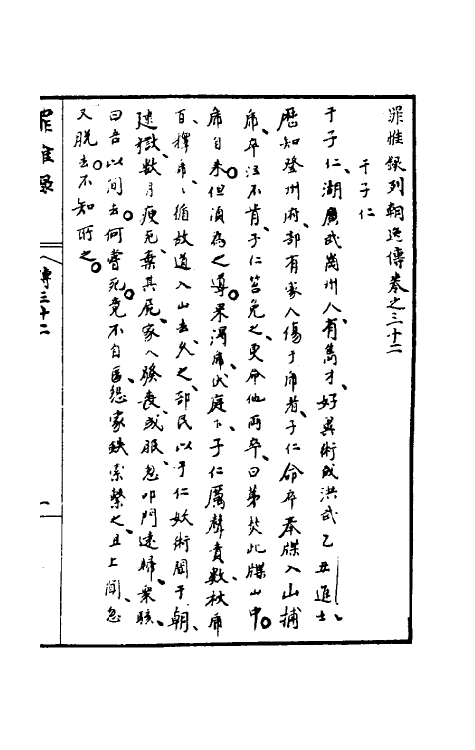 罪惟錄列朝逸傳卷之三十二
于子仁
于子仁、湖廣武岡州人、有雋才、好異術成洪武乙丑進士、
歷知登州府、部有家人傷于虎者、子仁命卒奉牒入山捕
虎、卒泣不肯、子仁笞免之、更命他兩卒、曰第焚此牒山中。
虎自來。但須為之導。果得虎、伏庭下、子仁厲聲責數、杖虎
百、擇虎、循故道入山去、久之、部民以子仁妖術聞于朝、
逮獄、數月瘐死、棄其屍、家人發喪、或服、忽叩門逺歸、衆駭、
曰吾以間去。何嘗死。竟不自匿、怨家鈇索繫之、且上聞、忽
又脫去。不知所之。
罪惟錄
傳三十二
一